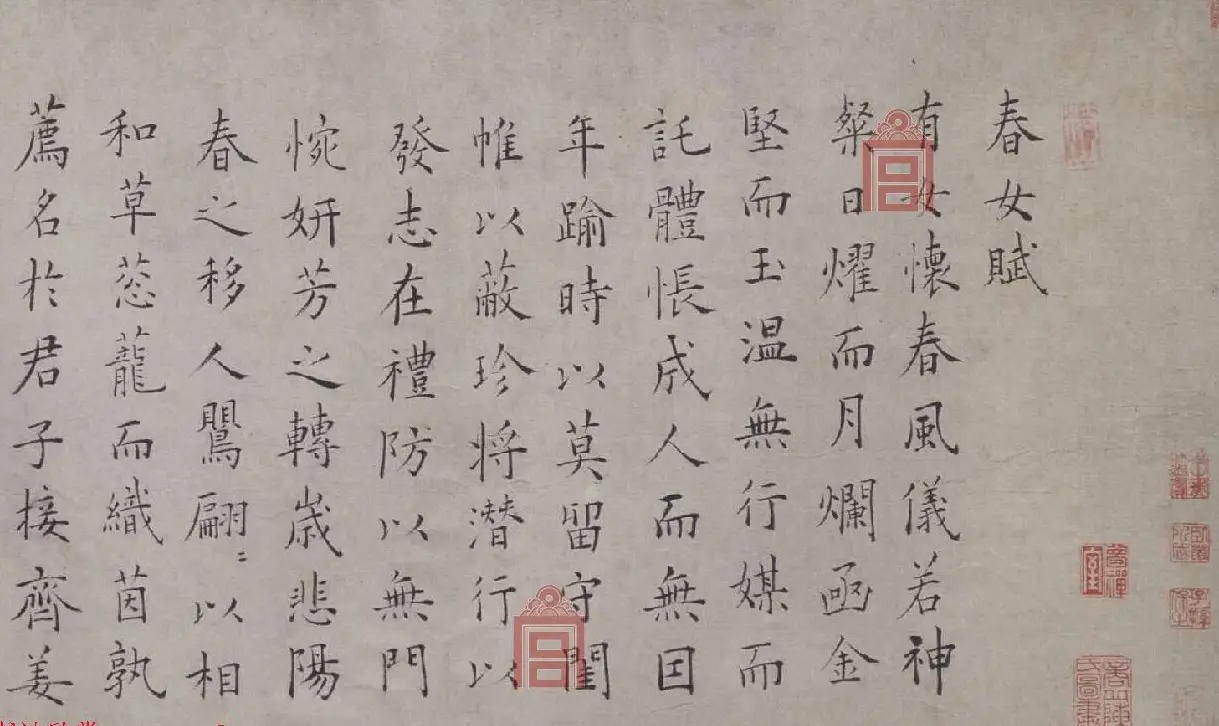 春女賦
有女懷春風儀若神
粲日燿而月爛函金
堅而玉温無行媒而
託體悵成人而無因
年踰時以莫留守閨
帷以蔽珍将潜行以
發志在禮防以無門
惋妍芳之轉歳悲陽
春之移人鸎翩〻以相
和草蒑蘢而織茵孰
薦名於君子接齊姜